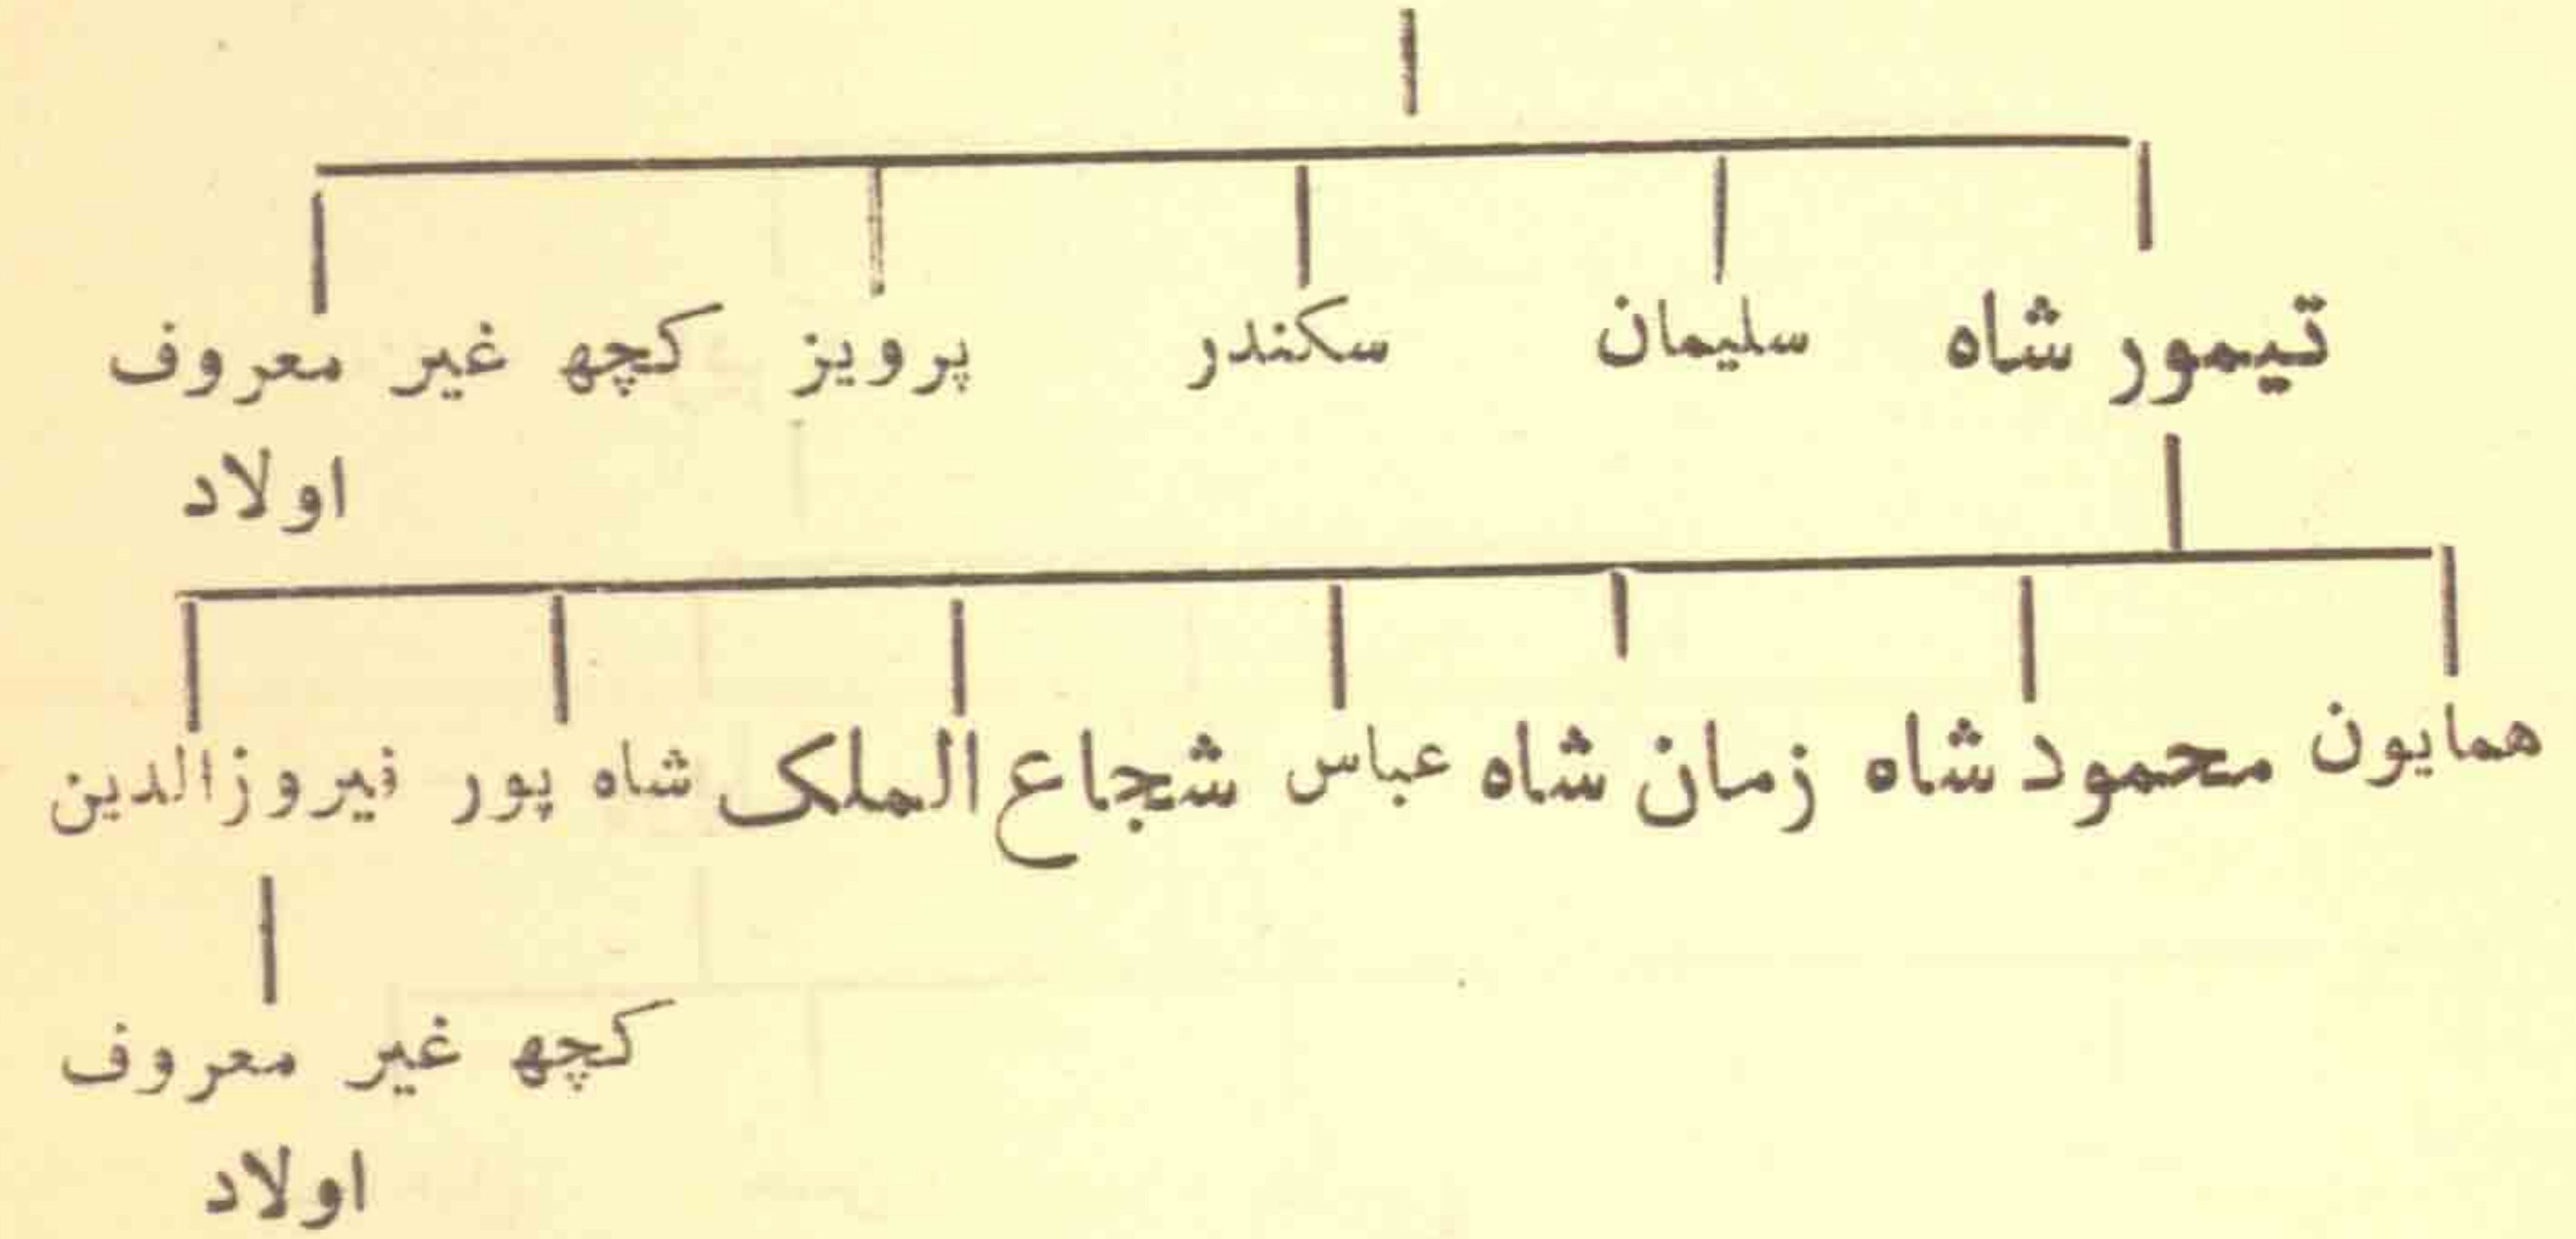 تیمور شاہ سلیمان سکندر پرویز کچھ غیر معروف
اولاد
ھمایون محمود شاہ زمان شاہ عباس شجاع الملک شاہ پور فیروزالدین
کچھ غیر معروف
اولاد